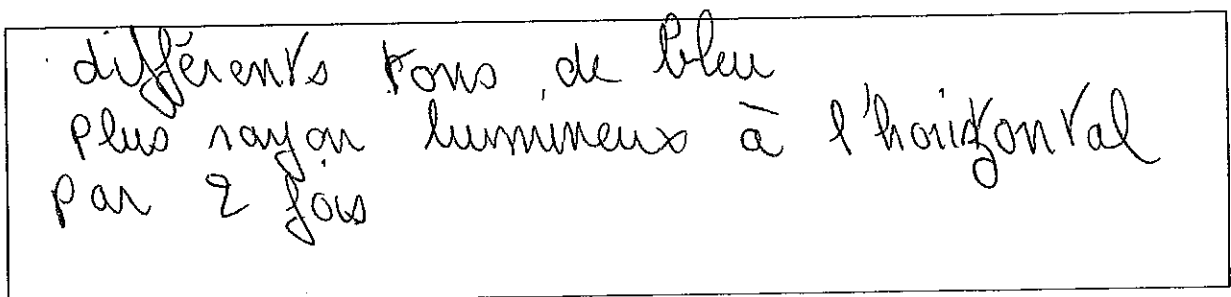 différents tons de bleu
plus rayon lumineux à l'horizontal
par 2 fois